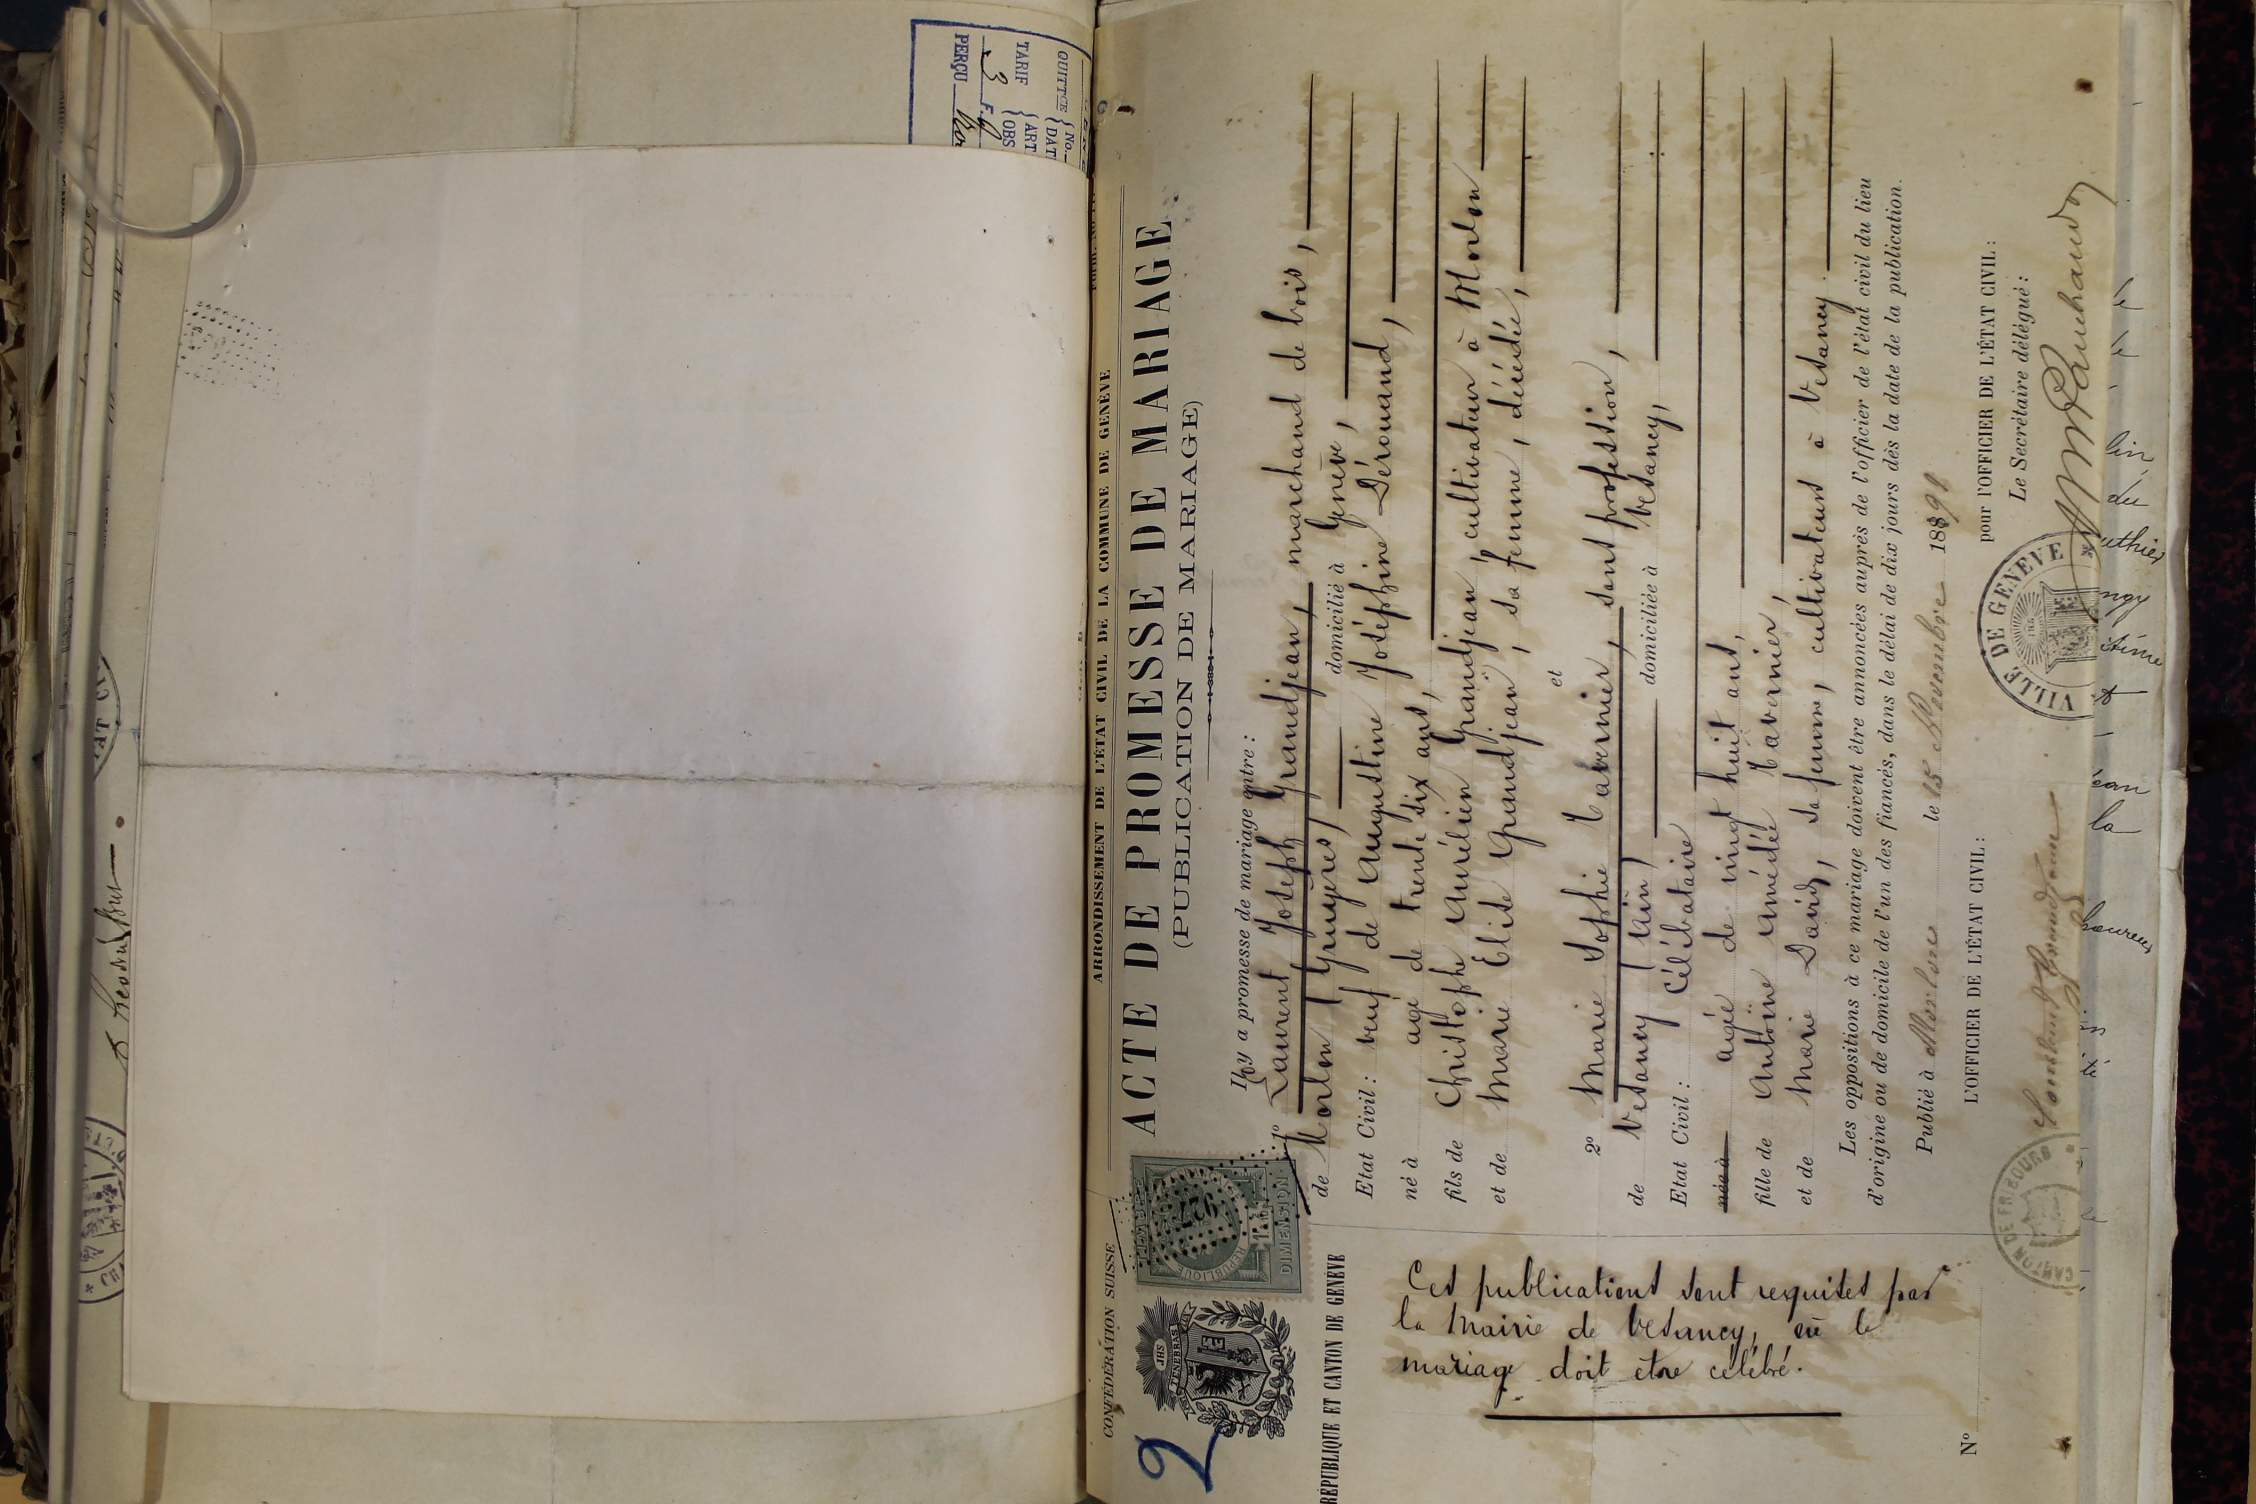 CONFÉDÉRATION SUISSE
ARRONDISSEMENT DE L'ÉTAT CIVIL DE LA COMMUNE DE GENÈVE
ACTE DE PROMESSE DE MARIAGE
(PUBLICATION DE MARIAGE)
2
JHS
TENEBRAS
RÉPUBLIQUE ET CANTON DE GENÈVE
TIMBRE
927
RÉPUBLIQUE
DIMENSION
Il y a promesse de mariage entre :
1º Laurent Joseph Grandjean, marchand de bois,
de Morlon (Gruyères) domicilié à Genève,
Etat Civil : veuf de Augustine Joséphine Dérouand,
né à âgé de trente six ans,
fils de Chistophe Aurélien Grandjean, cultivateur à Morlon
et de Marie Elise Grandjean, sa femme, décédée,
et
2º Marie Sophie Tavernier, sans profession,
de Vesancy (Ain) domiciliée à Vesancy,
Etat Civil : Célibataire
née à agée de vingt huit ans,
fille de Antoine Amédée Tavernier,
et de Marie David, sa femme, cultivateurs à Vesancy.
Les oppositions à ce mariage doivent être annoncées auprès de l'officier de l'état civil du lieu
d'origine ou de domicile de l'un des fiancés, dans le délai de dix jours dès la date de la publication.
Publié à Morlon le 15 Novembre 1891
L'OFFICIER DE L'ÉTAT CIVIL :
pour l'OFFICIER DE L'ÉTAT CIVIL :
Le Secrétaire délégué :
VILLE DE GENEVE
CANTON DE FRIBOURG
Ces publications sont requises par
la Mairie de Vesancy, où le
mariage doit etre célébré.
Nº
QUITTCE
No.
DAT
TARIF
ART
OBS
3 F.
PERÇU
lin
du
uthier
ngy
itime
et
éan
la